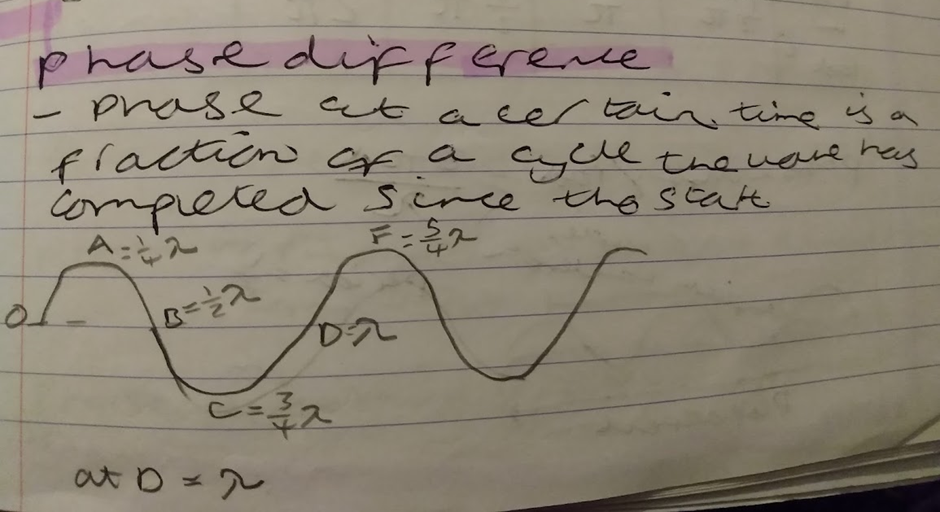 phase difference
- phase at a certain time is a
fraction of a cycle the wave has
completed since the start
A = 1/4 λ
F = 5/4 λ
B = 1/2 λ
0
D = λ
C = 3/4 λ
at D = λ